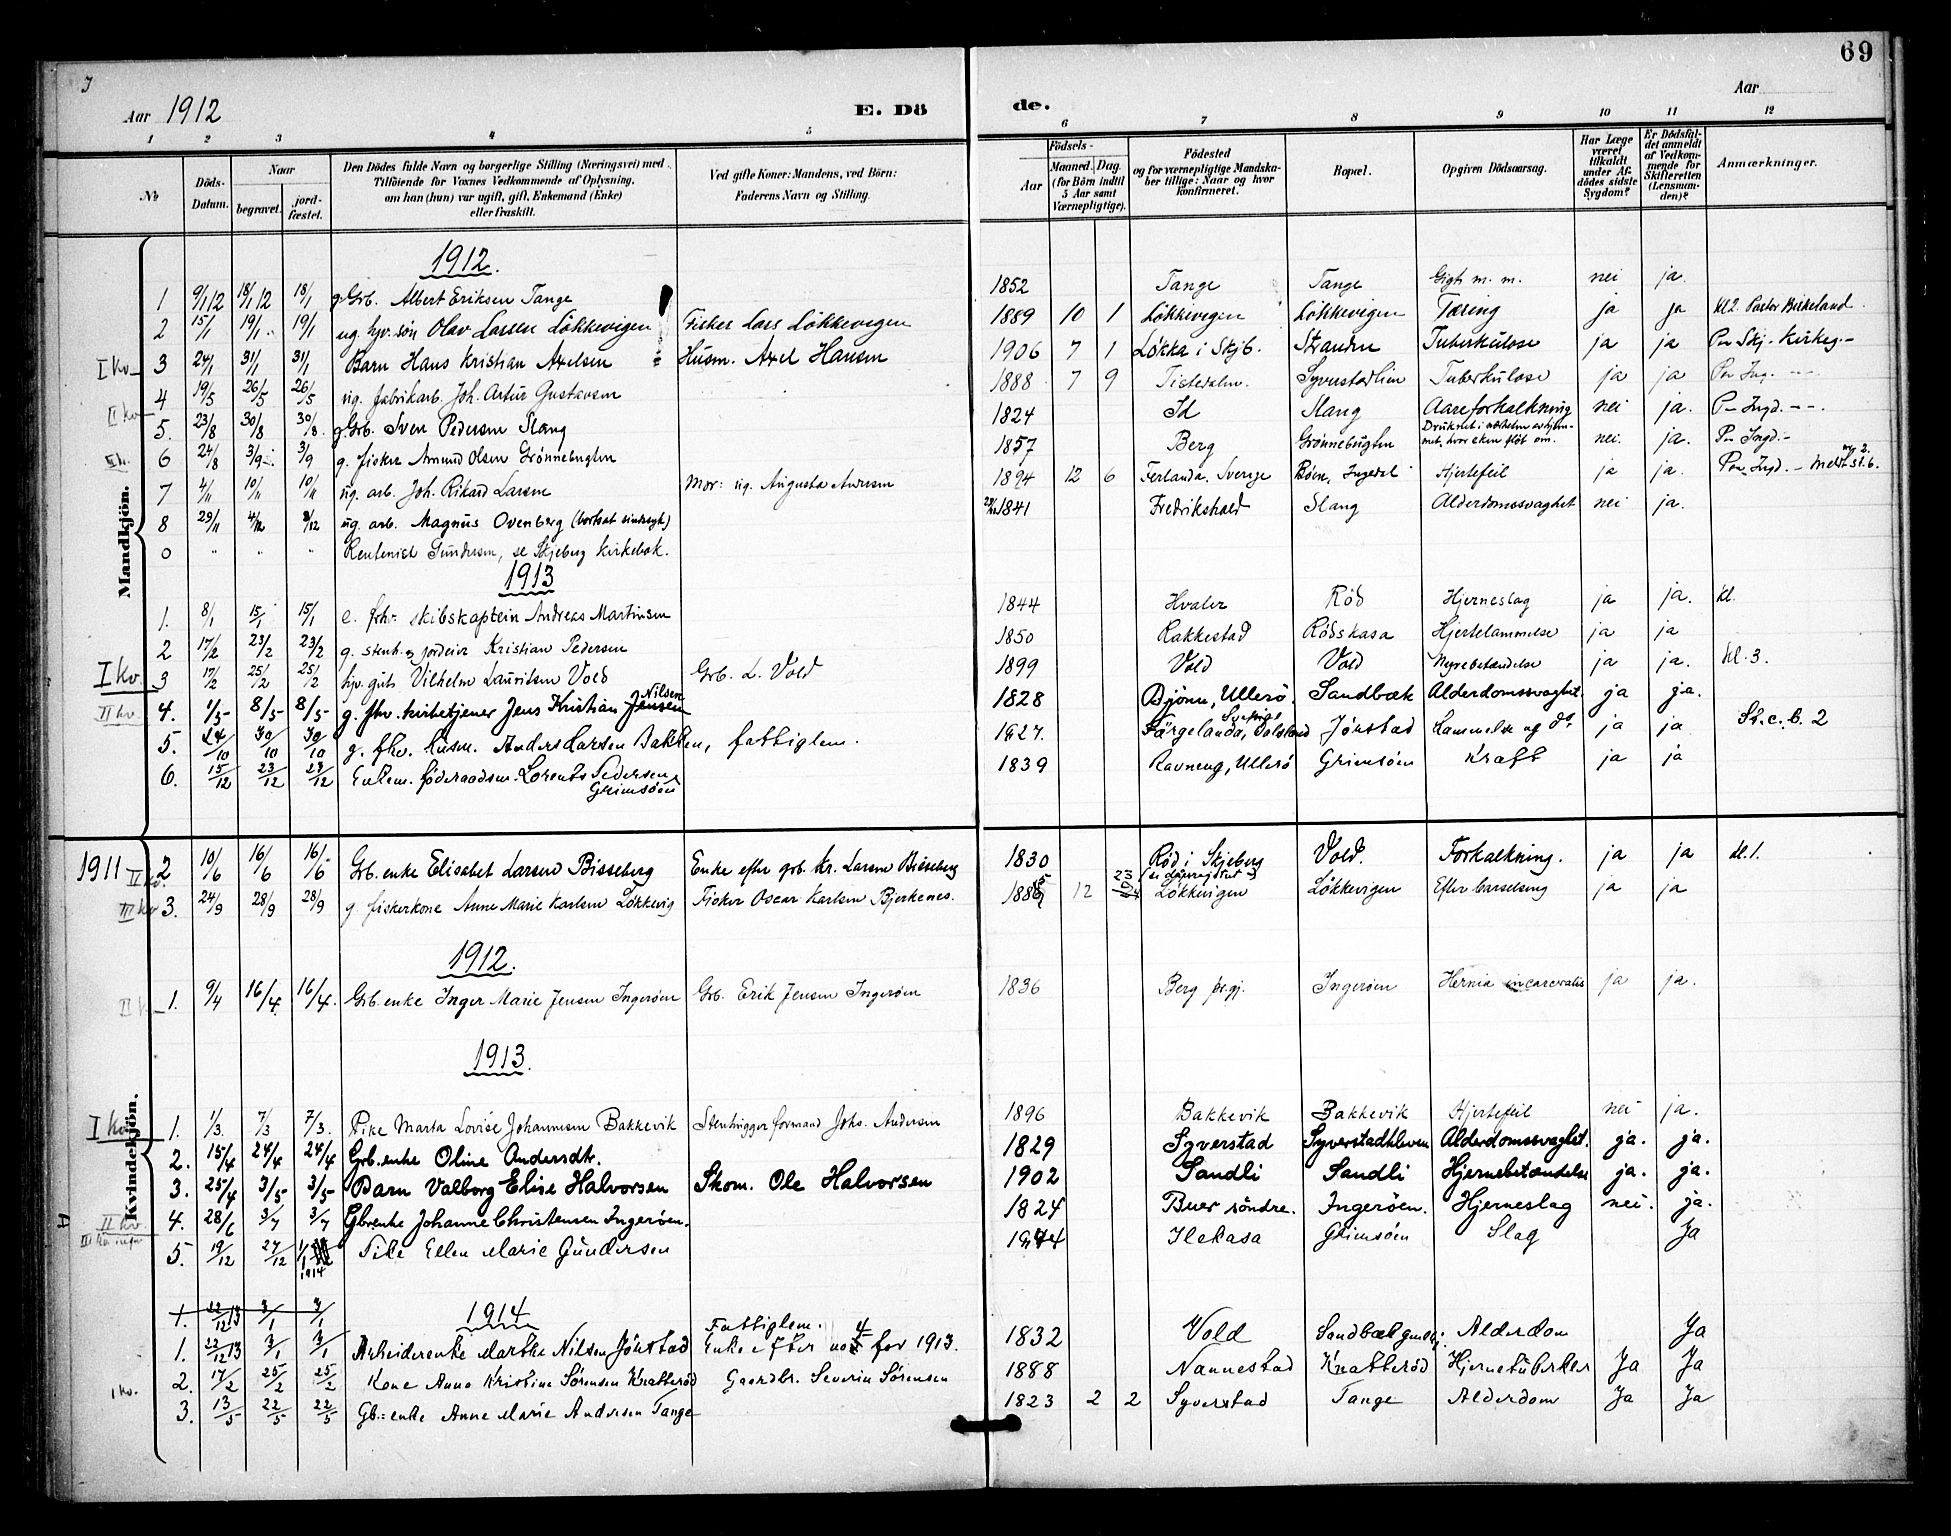 69
Aar 1912
E. Dö
de.
Aar
1 2 3 4 5 6 7 8 9 10 11 12
No
Döds-Datum.
Naar
begravet.
jord-fæstet.
Den Dödes fulde Navn og borgerlige Stilling (Næringsvei) med
Tilföiende for Voxnes Vedkommende af Oplysning,
om han (hun) var ugift, gift, Enkemand (Enke)
eller fraskilt.
Ved gifte Koner: Mandens, ved Börn:
Faderens Navn og Stilling.
Födsels-
Aar
Maaned. Dag.
(for Börn indtil
5 Aar samt
Værnepligtige).
Födested
og for værnepligtige Mandska-
ber tillige: Naar og hvor
konfirmeret.
Bopæl.
Opgiven Dödsaarsag.
Har Læge
været
tilkaldt
under Af-
dödes sidste
Sygdom?
Er Dödsfal-
det anmeldt
af Vedkom-
mende for
Skifteretten
(Lensman-
den)?
Anmærkninger.
Mandkjön.
1912.
1 9/1 12 18/1 12 18/1 g. Grb. Albert Eriksen Tange 1852 Tange Tange Gigt m. m. nei ja.
2 15/1 19/1 19/1 ug. hjv. søn Olav Larsen Løkkevigen Fisker Lars Løkkevigen 1889 10 1 Løkkevigen Løkkevigen Tæring ja ja Kl. 2. Pastor Birkeland
I kv. 3 24/1 31/1 31/1 Barn Hans Kristian Axelsen Husm. Axel Hansen 1906 7 1 Løkka i Skjb. Stranden Tuberkulose ja ja Paa Skj. Kirkeg.
4 19/5 26/5 26/5 ug. fabrikarb. Joh. Artur Gustavsen 1888 7 9 Tistedalen. Syverstadlien Tuberkulose ja ja Paa Ing.
II kv 5. 23/8 30/8 30/8 g. Grb. Sven Pedersen Slang 1824 Id Slang Aareforkalkning nei ja. Paa Ingd.
6 24/8 3/9 3/9 g. fisker Amund Olsen Grønnebugten 1857 Berg Grønnebugten nei. ja. Paa Ingd.
7 4/11 10/11 10/11 ug. arb. Joh. Rikard Larsen Mor: ug. Augusta Andersen 1894 12 6 Ferlanda, Sverige Bøen, Ingedal Hjertefeil ja ja. Paa Ingd.
8 29/11 4/12 ug. arb. Magnus Ovenberg (bortsat sindssyk) 1841 Fredrikshald Slang Alderdomssvaghet nei ja.
0 " " " Rentenist Gundersen, se Skjeberg kirkebok.
1913
1. 8/1 15/1 15/1 e. fhv. skibskaptein Andreas Martinsen 1844 Hvaler Rød Hjerneslag ja ja. kl.
2 17/2 23/2 23/2 g. stenh. og jordeier Kristian Pedersen 1850 Rakkestad Rødskasa Hjertelammelse ja ja
I kv. 3 17/2 25/2 25/2 hjv. gut Vilhelm Lauritsen Vold Grb. L. Vold 1899 Vold Vold Nyrebetændelse ja ja. kl. 3.
II kv. 4. 1/5 8/5 8/5 g. fhv. kirketjener Jens Kristian Jensen Nilsen 1828 Bjønn, Ullerö Sandbæk Alderdomssvaghet. ja ja.
5. 24/10 30/10 30/10 g. fhv. husm. Anders Larsen Bakken, fattiglem. 1827. Färgelanda, Dalsland Sverige Jonstad Lammelse og ja ja St. c. b. 2
6. 15/12 23/12 23/12 Enkem. føderaadsm. Lorents Pedersen Grimsøen 1839 Ravneng, Ullerö Grimsöen Kraft ja ja
Kvindekjön.
1911 II kv. 2 10/6 16/6 16/6 Grb. enke Elisabet Larsen Bisseberg Enke efter grb. Kr. Larsen Bisseberg 1830 Rød i Skjeberg Vold. Forkalkning. ja ja kl. 1.
III kv 3. 24/9 28/9 28/9 g. fiskerkone Anne Marie Karlsen Løkkevig Fisker Oscar Karlsen Bjerkenes. 12 Løkkevigen Løkkevigen Efter barselseng ja ja
1912.
1. 9/4 16/4 16/4. Grb. enke Inger Marie Jensen Ingerøen Grb. Erik Jensen Ingerøen 1836 Berg pr.gj. Ingerøen Hernia incarceratis ja ja.
1913.
I kv. 1. 1/3. 7/3 7/3. Pike Marta Lovise Johannesen Bakkevik Stenhugger formand Johs. Andersen 1896 Bakkevik Bakkevik Hjertefeil nei ja.
2. 15/4 24/4 24/4 Grb. enke Oline Andersdtr. 1829 Syverstad Syverstadkleven Alderdomssvaghet. ja. ja.
3. 25/4 3/5 3/5 Barn Valborg Elise Halvorsen Skom. Ole Halvorsen 1902 Sandli Sandli Hjernebetændelse ja. ja.
II kv. 4. 28/6 3/7 3/7 Gbrenke Johanne Christensen Ingerøen. 1824 Buer söndre. Ingeröen. Hjerneslag nei. ja.
III kv. ingen 5. 19/12 27/12 1/1 1914 Pike Ellen Marie Gundersen Ilekasa Grimsöen Slag Ja
1. 22/12 13 3/1 3/1 1914
1. 22/12 13 3/1 3/1 Arbeiderenke Marthe Nilsen Jönstad Fattiglem. Enke efter no 4 for 1913. 1832 Vold Alderdom Ja
2. 17/2 25/2 25/2 Kone Anna Kristine Sørensen Knatterød Gaardbr. Severin Sørensen 1888 Nannestad Knatterød Hjernetuberkler Ja Ja
1 kv. 3. 13/5 22/5 22/5 Gb.enke Anne Marie Andersen Tange 1823 2 2 Syverstad Tange Alderdom Ja Ja